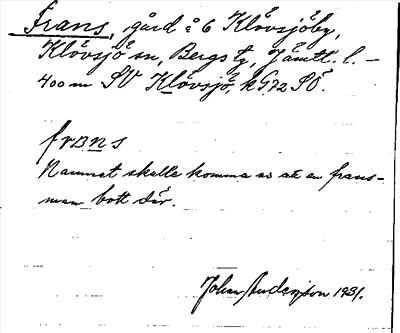 Frans, gård å 6 Klövsjöby,
Klövsjö sn, Bergs tg, Jämtl. l. –
400 m SV Klövsjö, k G72 SO.
frans
Namnet skulle komma av att en frans-
man bott där.
Johan Anderson 1931.